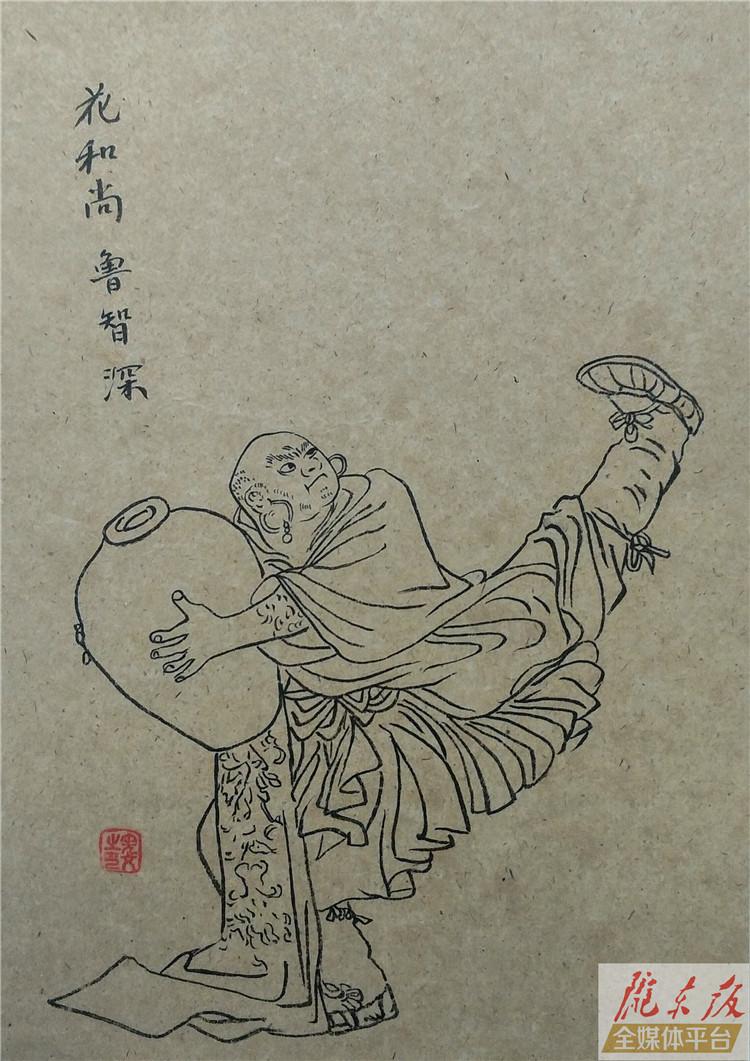 花和尚 鲁智深
陇东报
全媒体平台